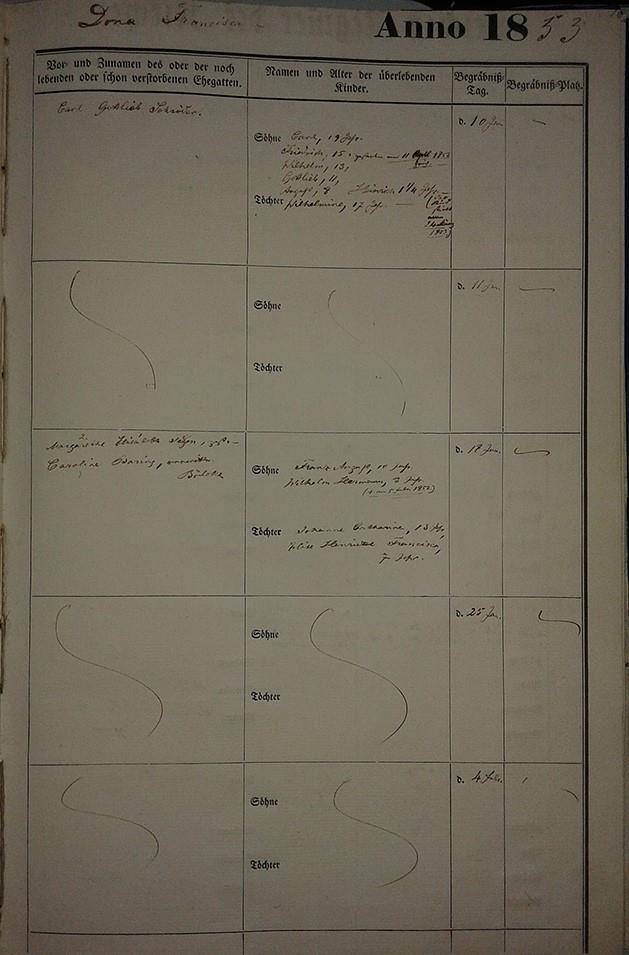 Dona Francisca
Anno 1853
Vor- und Zunamen des oder der noch
lebenden oder schon verstorbenen Ehegatten.
Namen und Alter der überlebenden
Kinder.
Begräbniß-
Tag.
Begräbniß-Platz.
Carl Gottlieb Schröder.
Söhne Carl, 19 Jahr.
Friedrich, 15
Wilhelm, 13,
Gottlieb, 11,
August, 8 Heinrich 1 1/4 Jahr.
Töchter Wilhelmine, 17 Jahr.
d. 10 Jan
Söhne
Töchter
d. 11 Jan.
Caroline
Söhne Franz August, 10 Jahr
Wilhelm Hermann, 2 Jahr
Töchter Johanne Catharine, 13 Jahr,
Elise Henriette Francisca,
7 Jahr.
d. 18 Jan.
Söhne
Töchter
d. 25 Jan.
Söhne
Töchter
d. 4 Febr.